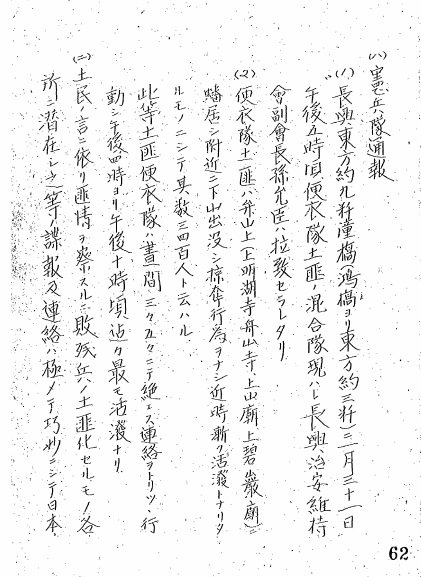 (八) 憲兵隊通報
(1) 長興東方約九粁潼橋鴻橋ヨリ東方約三粁ニ一月三十一日
午後五時頃便衣隊土匪ノ混合隊現ハレ長興治安維持
會副會長孫允臣ハ拉致セラレタリ
(2) 便衣隊土匪ハ弁山上(上明湖寺弁山寺上山廟上碧巖廟)ニ
蟠居シ附近ニ下山出没シ掠奪行為ヲナシ近時漸ク活潑トナリタ
ルモノニシテ其数三四百人ト云ハル
此等土匪便衣隊ハ晝間三々五々ニテ絶エス連絡ヲトリツヽ行
動シ午後四時ヨリ午後十時頃迄ヲ最モ活潑ナリ
(二) 土民ノ言ニ依リ匪情ヲ察スルニ敗残兵ハ土匪化セルモノ各
所ニ潜在シ之等諜報及連絡ハ極メテ巧妙ニシテ日本
62